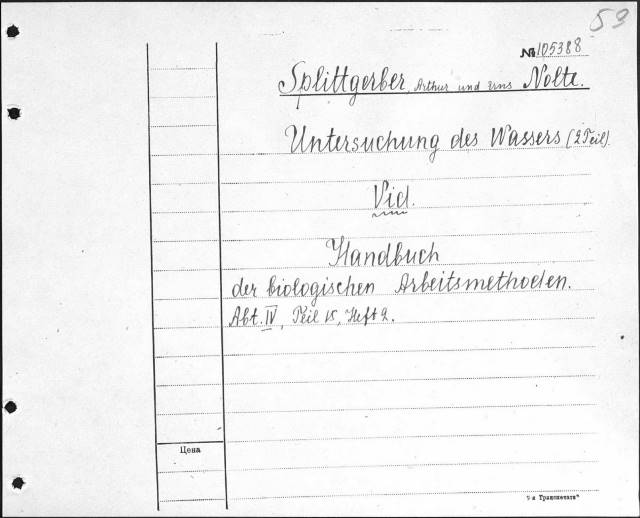 53
№ 105388
Splittgerber, Arthur und Erns Nolte.
Untersuchung des Wassers (2 Teil).
Vid.
Handbuch
der biologischen Arbeitsmethoden.
Abt. IV, Teil 15, Heft 2.
Цена
9-я Транспечать"